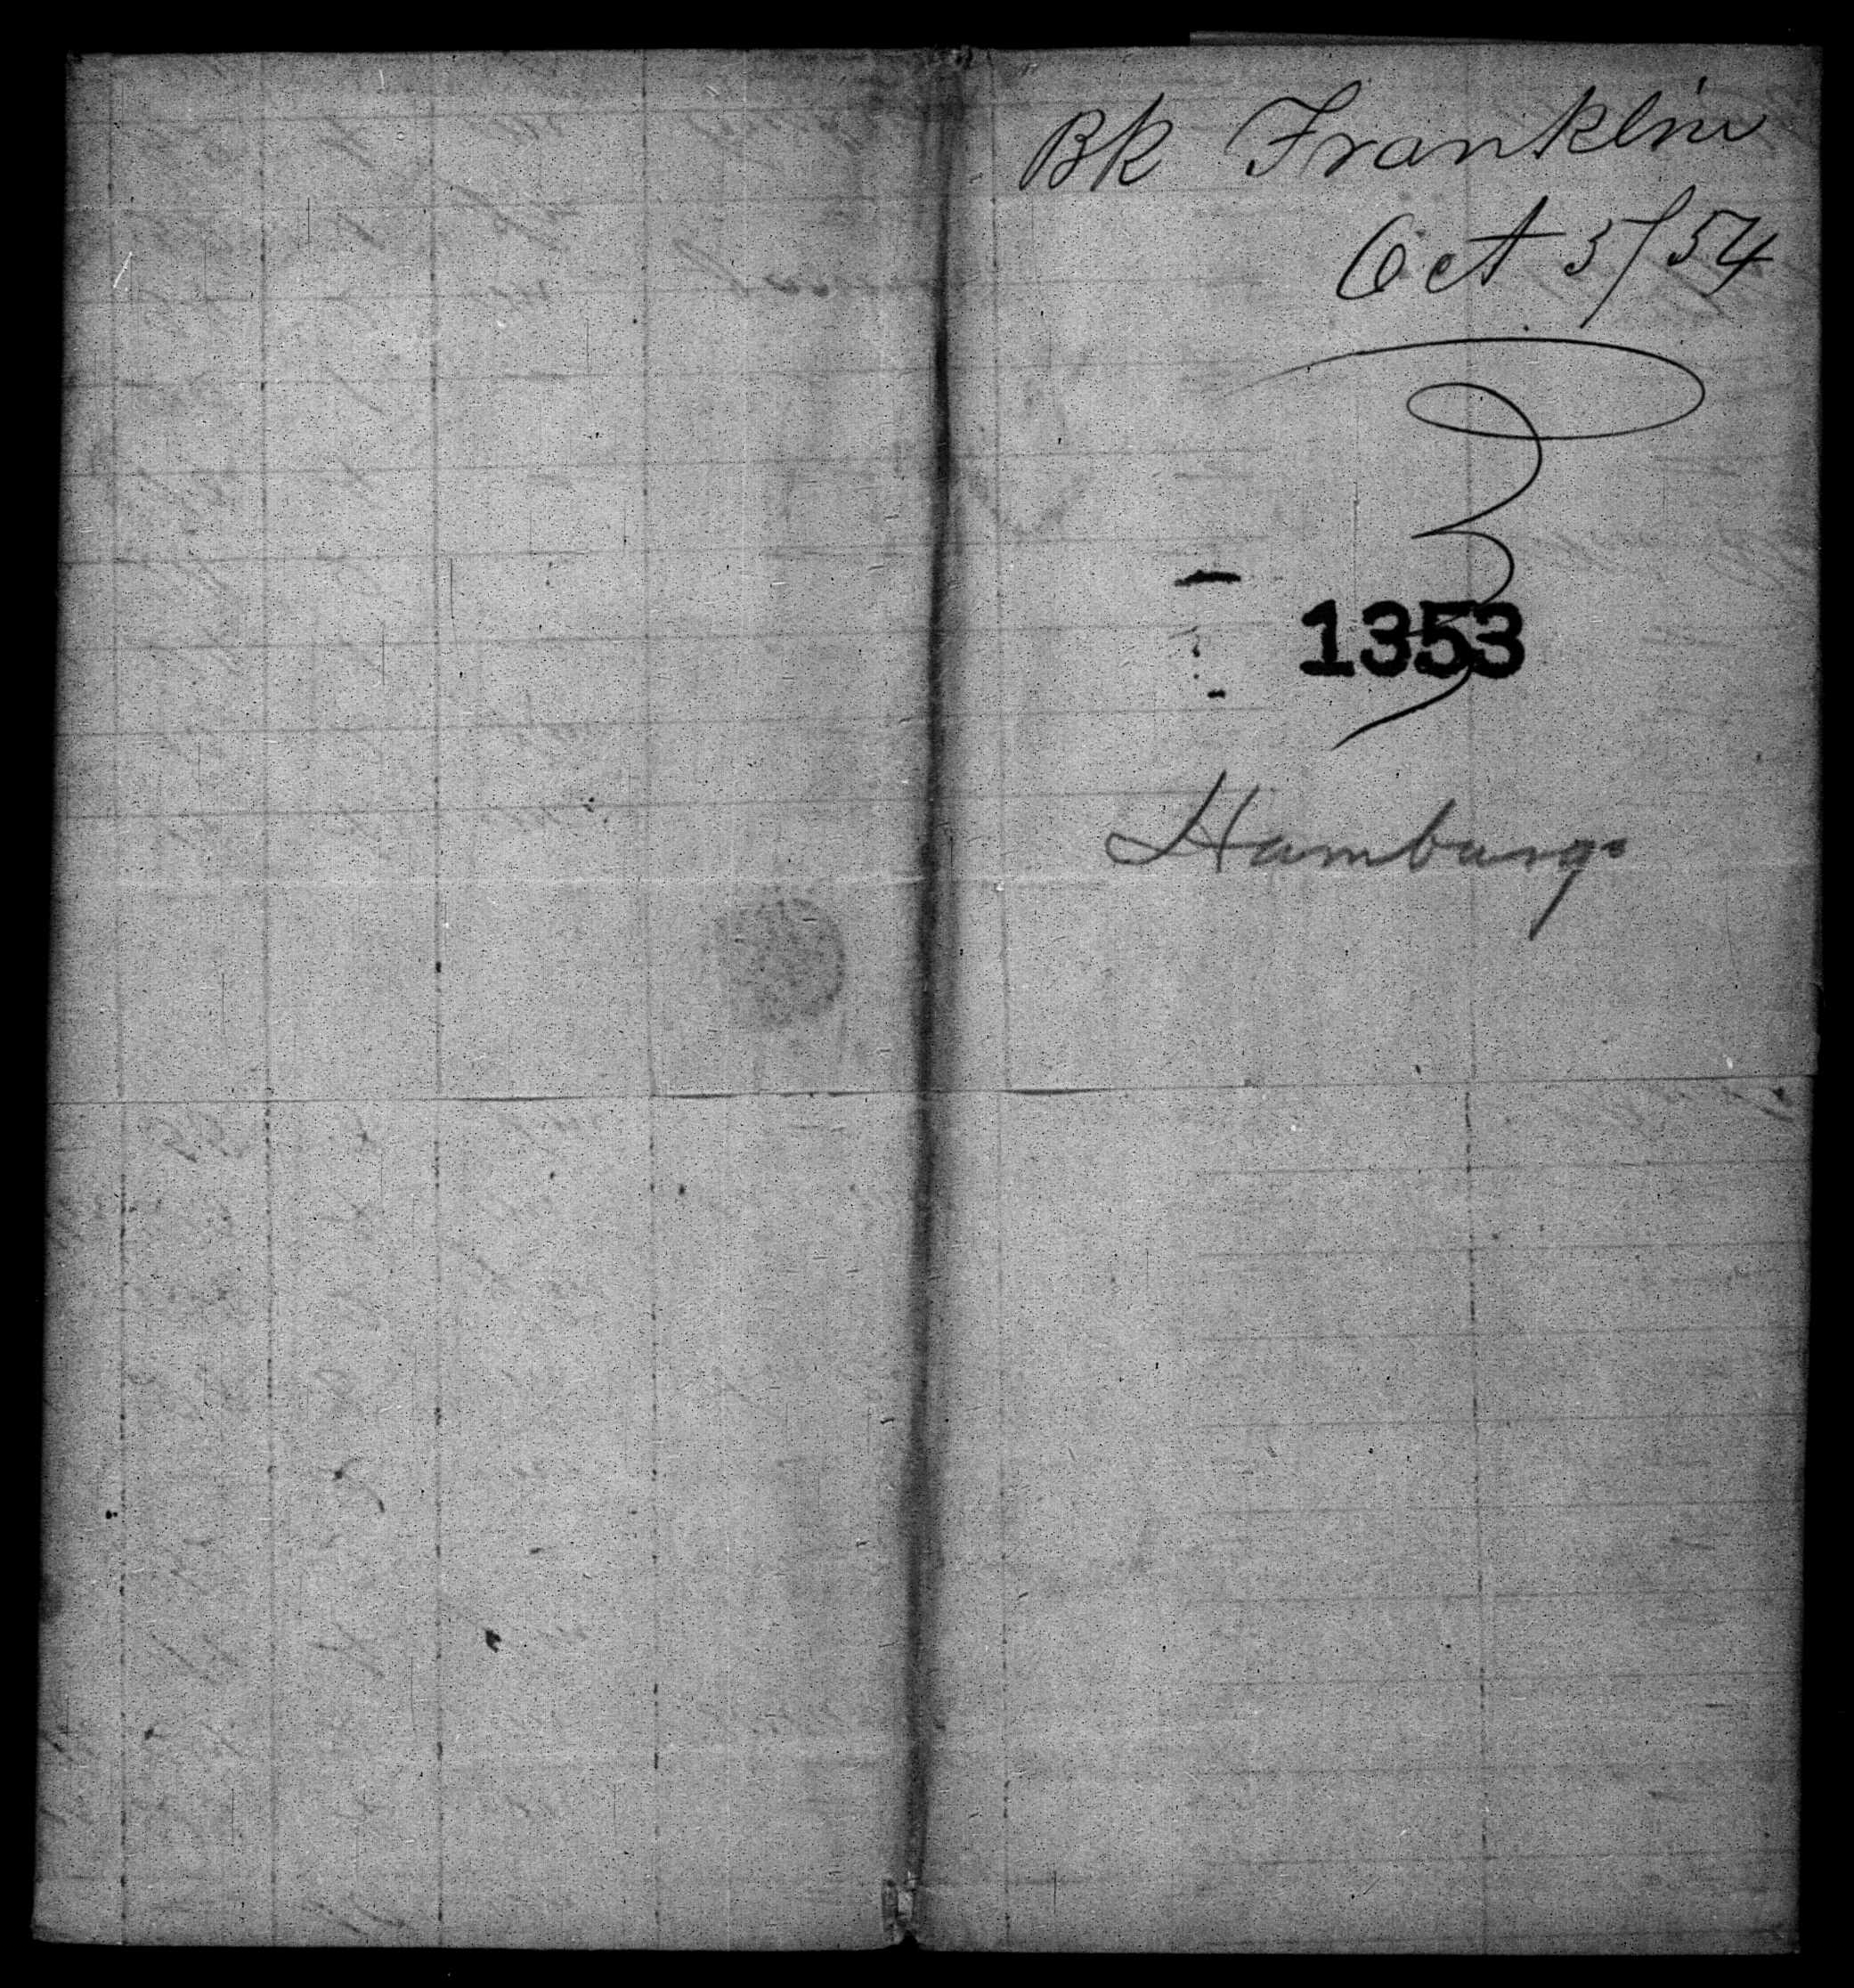 Bk Franklin
Oct 5/54
1353
Hamburg